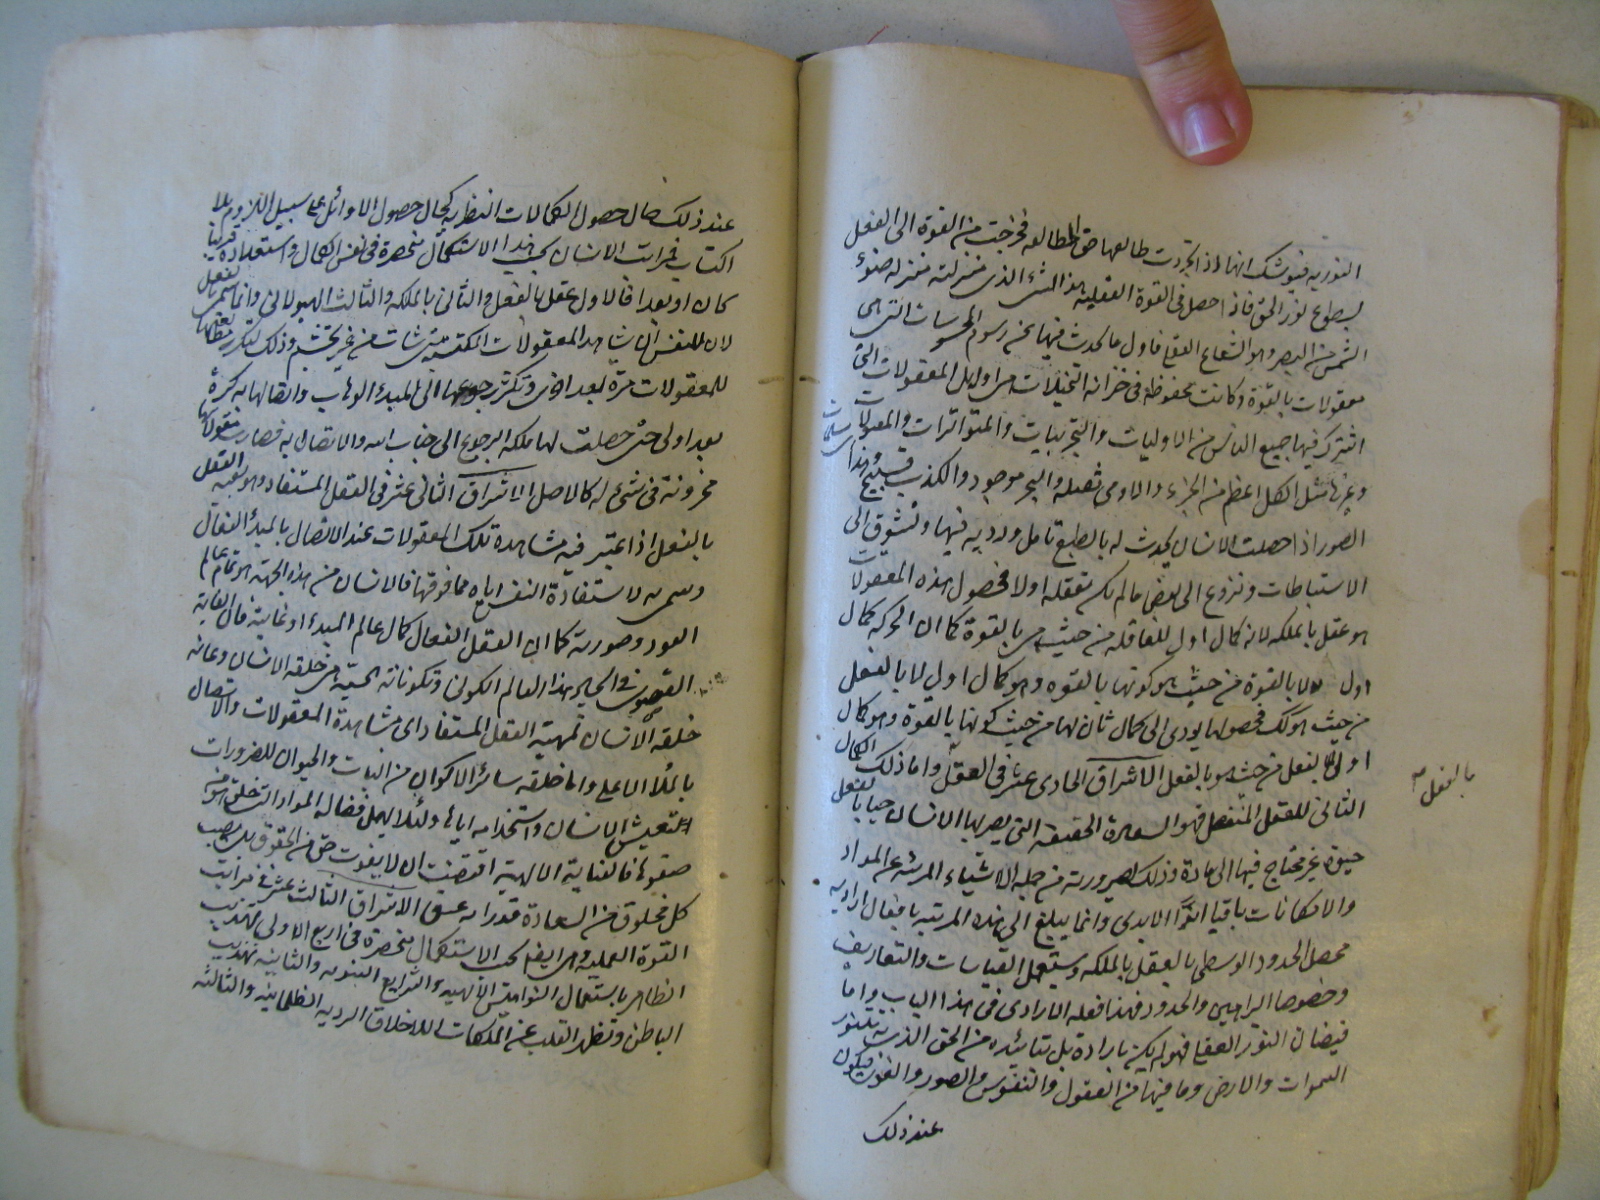 النورية فيوشك انها اذا تجردت طالعها حق المطالعه فخرجت من القوة الى الفعل
بسطوع نور الحق فاذا حصل فى القوة العقلية هذا الشئ الذى منزلته منزلة ضوء
الشمس من البصر وهو الشعاع العقلى فاول ما يحدث فيها من رسوم المحسوسات التى هى
معقولات بالقوة وكانت محفوظة فى خزانه التخيلات هى اوايل المعقولات التى
اشترك فيها جميع الناس من الاوليات والتجربيات والمتواترات والمقبولات
وغيرها مثل الكل اعظم من الجزء والارض ثقيلة والبحر موجود والكذب قبيح وهذه
الصور اذا حصلت للانسان يحدث له بالطبع تامل وروية فيها وتشوق الى
الاستنباطات ونزوع الى بعض مالم يكن تعقله اولا فحصول هذه المعقولات
هو عقل بالملكه لانه كمال اول للعاقلة من حيث هى بالقوة كما ان الحركه كمال
اول لما بالقوة من حيث هو كونها بالقوه وهو كمال اول لا بالفعل
من حيث هو كك فحصولها يودى الى كمال ثان لها من حيث كونها بالقوة وهو كمال
اول لما بالفعل من حيث هو بالفعل الاشراق الحادى عشر فى العقل واما ذلك الكمال
بالفعل
الثانى للعقل المنفعل فهو السعادة الحقيقة التى يصير بها الانسان حيا بالفعل
حيوة غير محتاج فيها الى مادة وذلك لصيرورته من جملة الاشياء المبرئه عن المواد
والامكانات باقيا ابد الابدى وانما يبلغ الى هذه المرتبه بافعال ارادية
محصل الحدود الوسطى بالعقل بالملكه ويستعمل القياسات والتعاريف
وخصوصا البراهين والحدود فهذا فعله الارادى فى هذا الباب واما
فيضان النور العقلى فهو لم يكن بارادة بل بتائيده من الحق الذى به تنور
السموات والارض وما فيها من العقول والنفوس والصور والقوى فيكون
عند ذلك
عند ذلك حال حصول الكمالات النظريه كحال حصول الاوائل على سبيل اللزوم بلا
اكتساب فمراتب الانسان بحسب هذا الاستكمال منحصرة فى نفس الكمال واستعداده قريبا
كان او بعيدا فالاول عقل بالفعل والثانى بالملكه والثالث الهيولانى وانما سمى بالفعل
لان للنفس ان يشاهد المعقولات المكتسبة متى شاءت من غير تجشم وذلك لتكرر مطالعتها
للمعقولات مرة بعد اخرى وتكثر رجوعها الى المبدء الوهاب واتصالها به كرة
بعد اولى حتى حصلت لها ملكه الرجوع الى جناب الله والاتصال به فصارت معقولاتها
مخزونة فى شئ له كالاصل الاشراق الثانى عشر فى العقل المستفاد وهو بعينه العقل
بالفعل اذا اعتبر فيه مشاهدة تلك المعقولات عند الاتصال بالمبدء الفعال
وسمى به لاستفادة النفس اياه مما فوقها فالانسان من هذه الجهة هو تمام عالم
العود وصورته كما ان العقل الفعال كمال عالم المبدء او غايته فان الغاية
القصوى فى ايجاد هذا العالم الكونى وتكوناته الحسية هى خلقه الانسان وغاية
خلقه الانسان تمهية العقل المستفاد اى مشاهدة المعقولات والاتصال
بالملاء الاعلى واما خلقه سائر الاكوان من النبات والحيوان للضرورات
تعيش الانسان واستخدامه اياها ولئلا يهمل فضاله المواد التى خلق من
صفوها فالعناية الالهية اقتضت ان لا يفوت حق من الحقوق بل يصيب
كل مخلوق من السعادة قدرا به يليق الاشراق الثالث عشر فى مراتب
القوة العملية وهى ايضا بحسب الاستكمال منحصرة فى اربع الاولى تهذيب
الظاهر باستعمال النواميس الالهية والشرايع النبوية والثانية تهذيب
الباطن وتطهر القلب عن الملكات للاخلاق الردية الظلمانية والثالثة